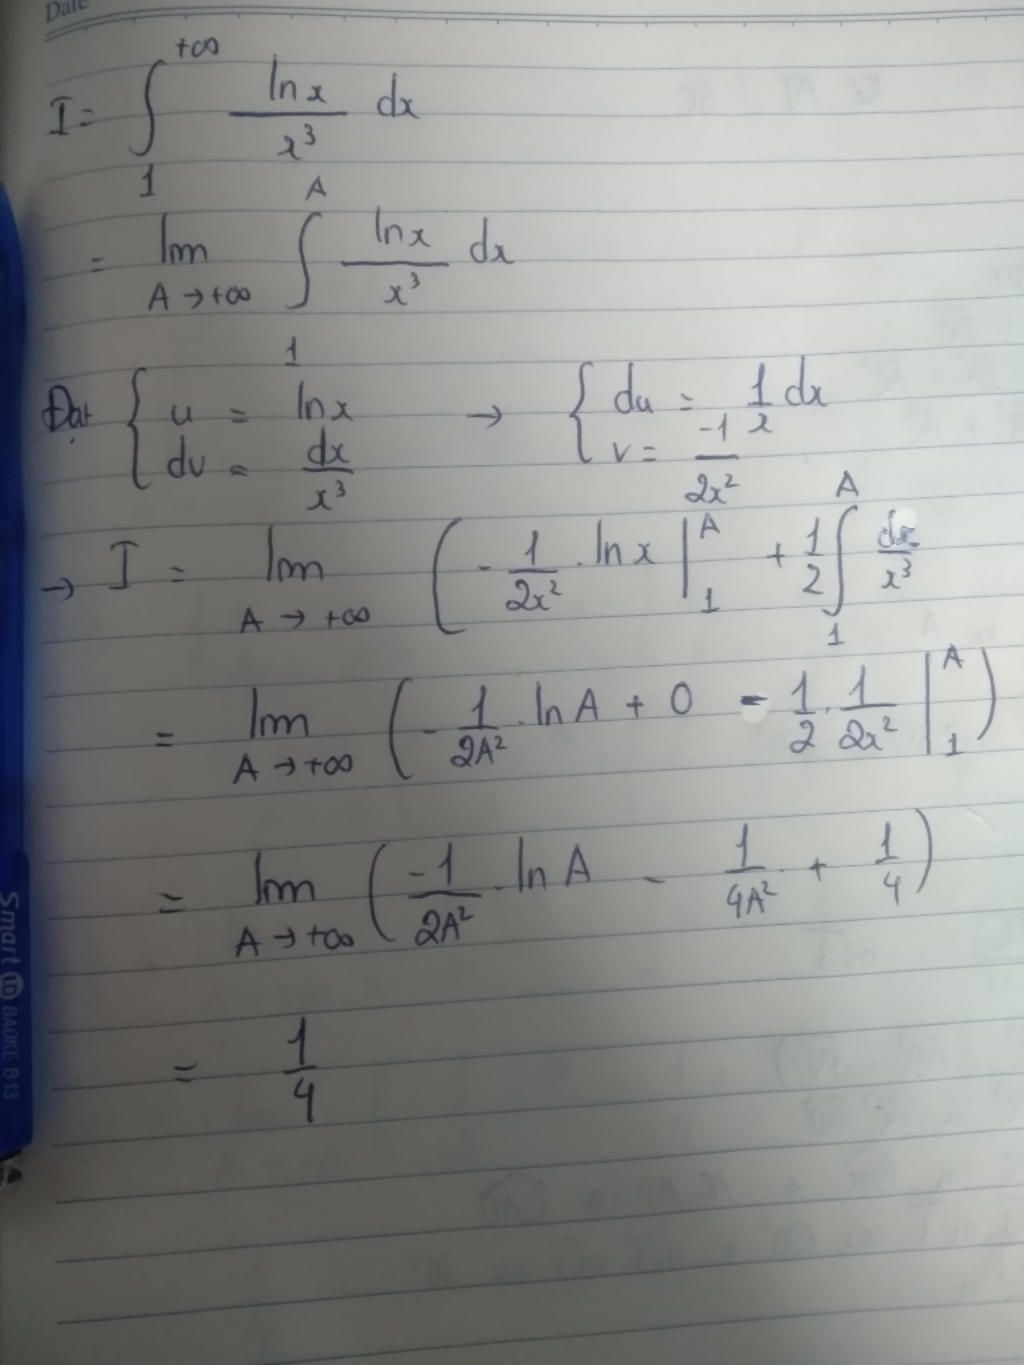 Date
I = ∫_1^{+∞} \frac{ln x}{x^3} dx
= lim_{A → +∞} ∫_1^A \frac{ln x}{x^3} dx
Đặt { u = ln x ; dv = \frac{dx}{x^3} → { du = \frac{1}{x} dx ; v = \frac{-1}{2x^2}
→ I = lim_{A → +∞} ( - \frac{1}{2x^2} . ln x |_1^A + \frac{1}{2} ∫_1^A \frac{dx}{x^3}
= lim_{A → +∞} ( - \frac{1}{2A^2} . ln A + 0 - \frac{1}{2} . \frac{1}{2x^2} |_1^A )
= lim_{A → +∞} ( \frac{-1}{2A^2} . ln A - \frac{1}{4A^2} + \frac{1}{4} )
= \frac{1}{4}
Smart BAOKE B13